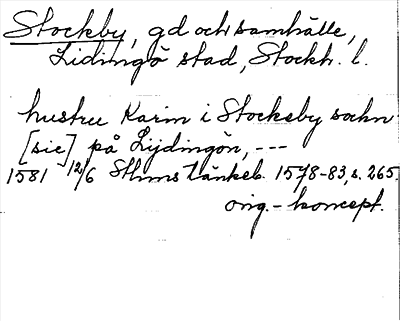 Stockby, gd och samhälle,
Lidingö stad, Stockh. l.
hustru Karin i Stockeby sockn
[sic] på Lijdingön, ---
1581 12/6 Sthms tänkeb. 1578-83, s. 265.
orig.-koncept.